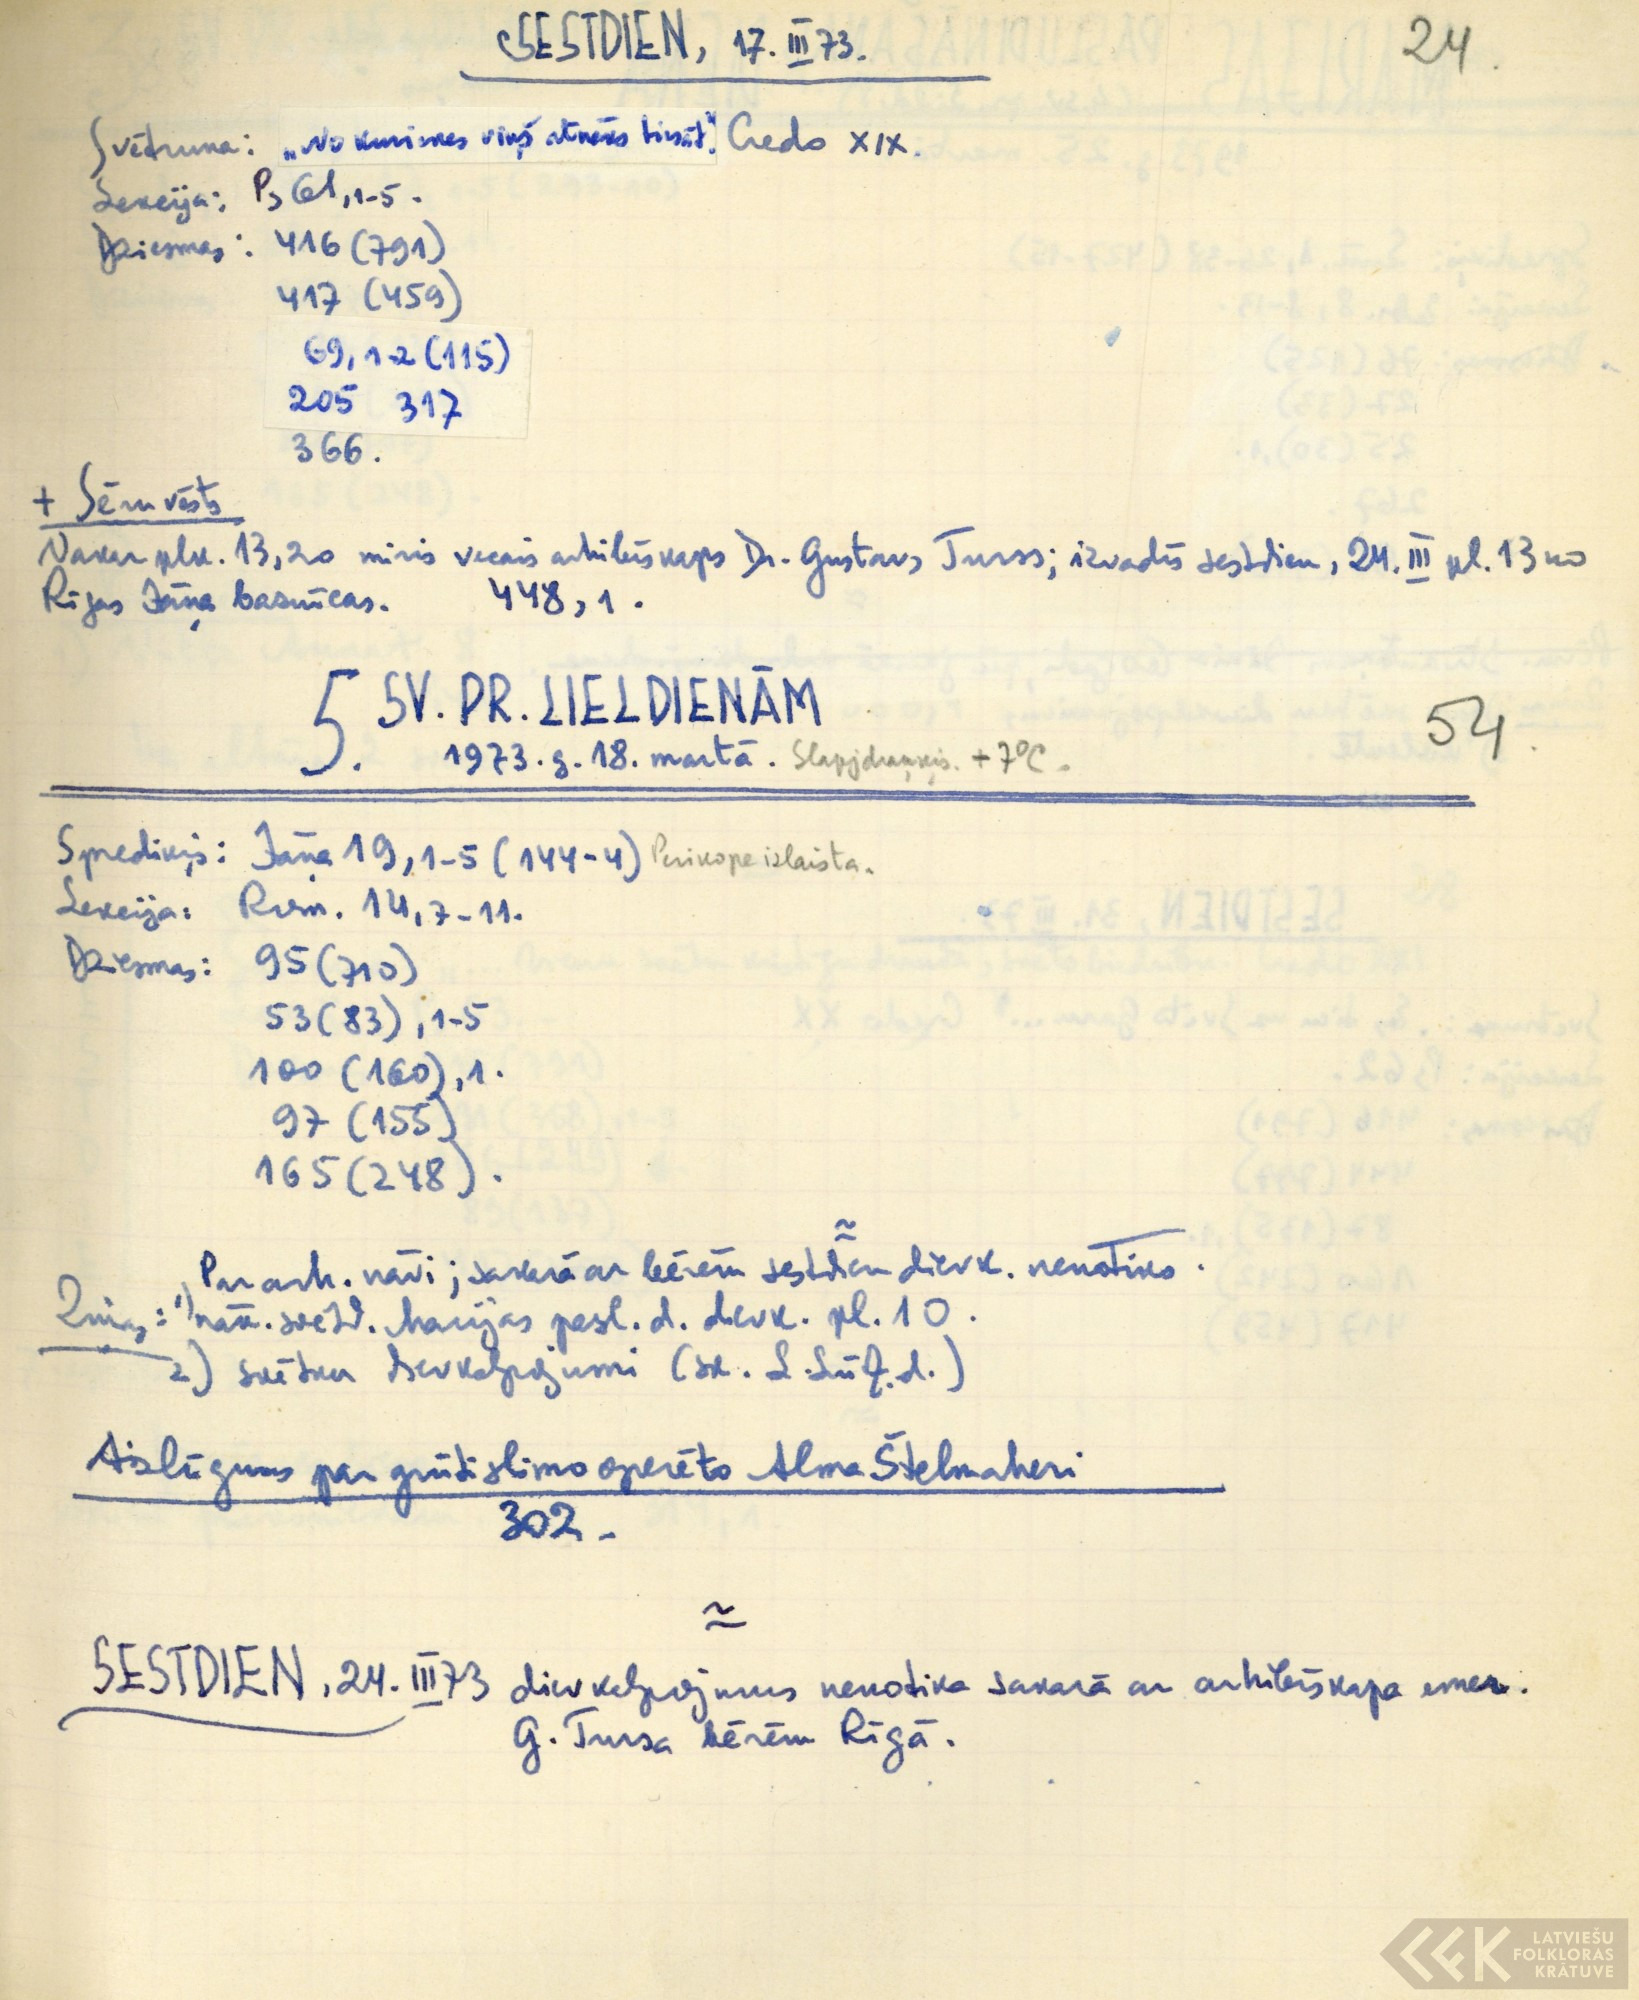 SESTDIEN, 17. III 73.
24.
Svētruna: „No kurienes viņš atnāks tiesāt." Credo XIX.
Lekcija: Ps 61,1-5.
Dziesmas: 416 (791)
417 (459)
69,1-2 (115)
205 317
366.
+ Sēru vēsts
Vakar plk. 13,20 miris vecais arhibīskaps Dr. Gustavs Turss; izvadīs sestdien, 24. III pl. 13 no
Rīgas Jāņa baznīcas. 448,1.
5. SV. PR. LIELDIENĀM
54.
1973. g. 18. martā. Slapjdraņķis. +7°C.
Sprediķis: Jāņa 19,1-5 (144-4) Perikope izlaista.
Lekcija: Rom. 14,7-11.
Dziesmas: 95 (710)
53 (83), 1-5
100 (160), 1.
97 (155)
165 (248).
~
Par arh. nāvi; sakarā ar bērēm sestdien dievk. nenotiks.
Ziņas: 1) nāk. svētd. Marijas pasl. d. dievk. pl. 10.
2) svētku dievkalpojumi (sk.
Aizlūgums par grūti slimo operēto Alma Štelmaheri
302.
~
SESTDIEN, 24. III 73 dievkalpojums nenotika sakarā ar arhibīskapa emer.
G. Tursa bērēm Rīgā.
LATVIEŠU
FOLKLORAS
KRĀTUVE